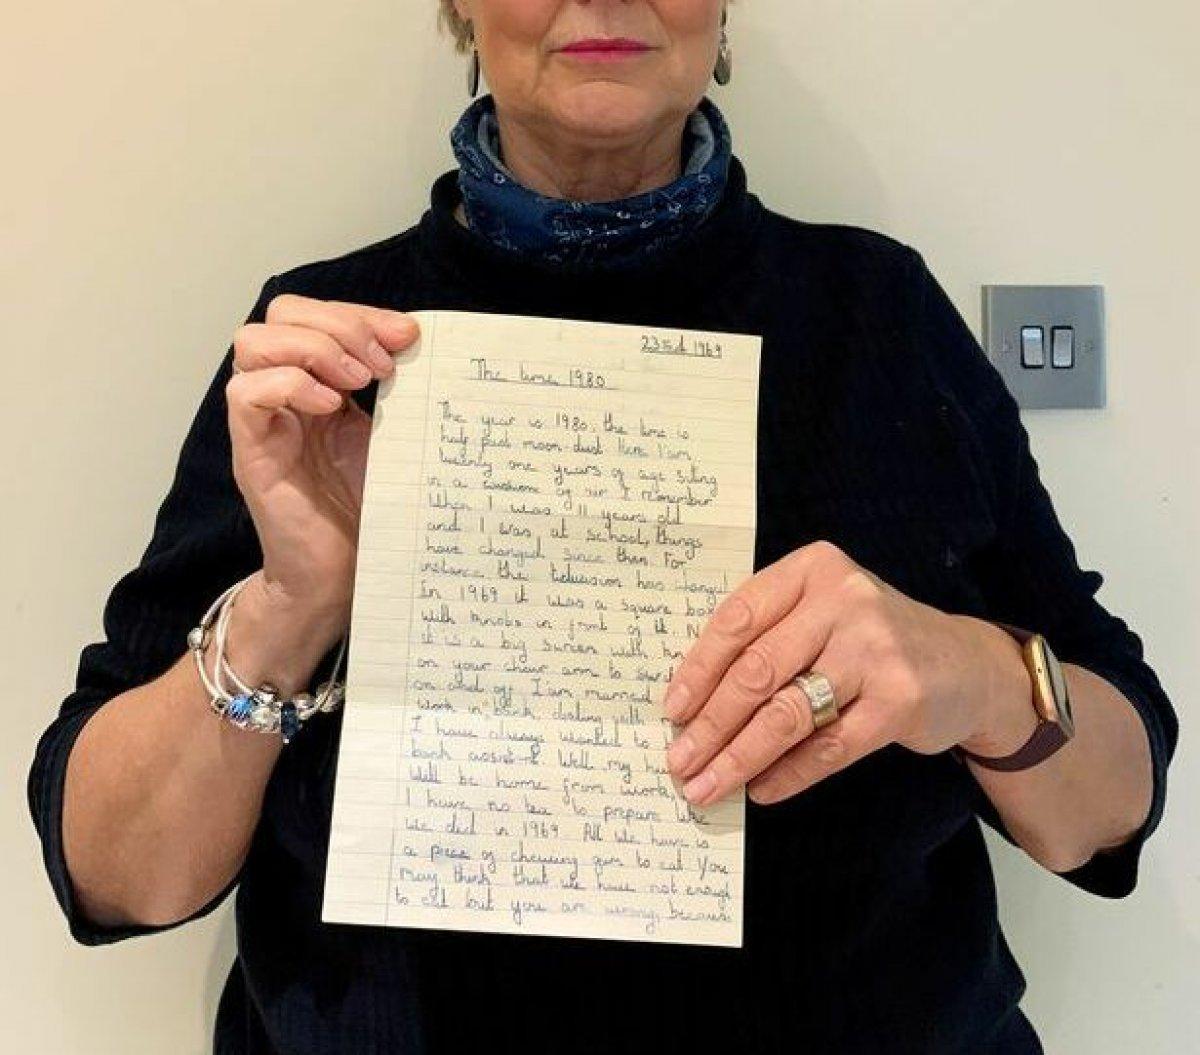 23rd 1969
The time 1980
The year is 1980, the time is
half past moon-dust. Here I am
twenty one years of age siting
in a cushion of air I remember
When I was 11 years old
and I was at school, things
have changed since then. For
instance the television has changed
In 1969 it was a square box
with knobs in front of it. N
it is a big screen with kn
on your chair arm to
on and off. I'am married
work in bank, dealing with
I have always wanted to b
bank assist-t. Well my hu
will be home from work,
I have no tea to prepare like
we did in 1969. All we have is
a piece of chewing gum to eat You
may think that we have not enough
to eat but you are wrong, because